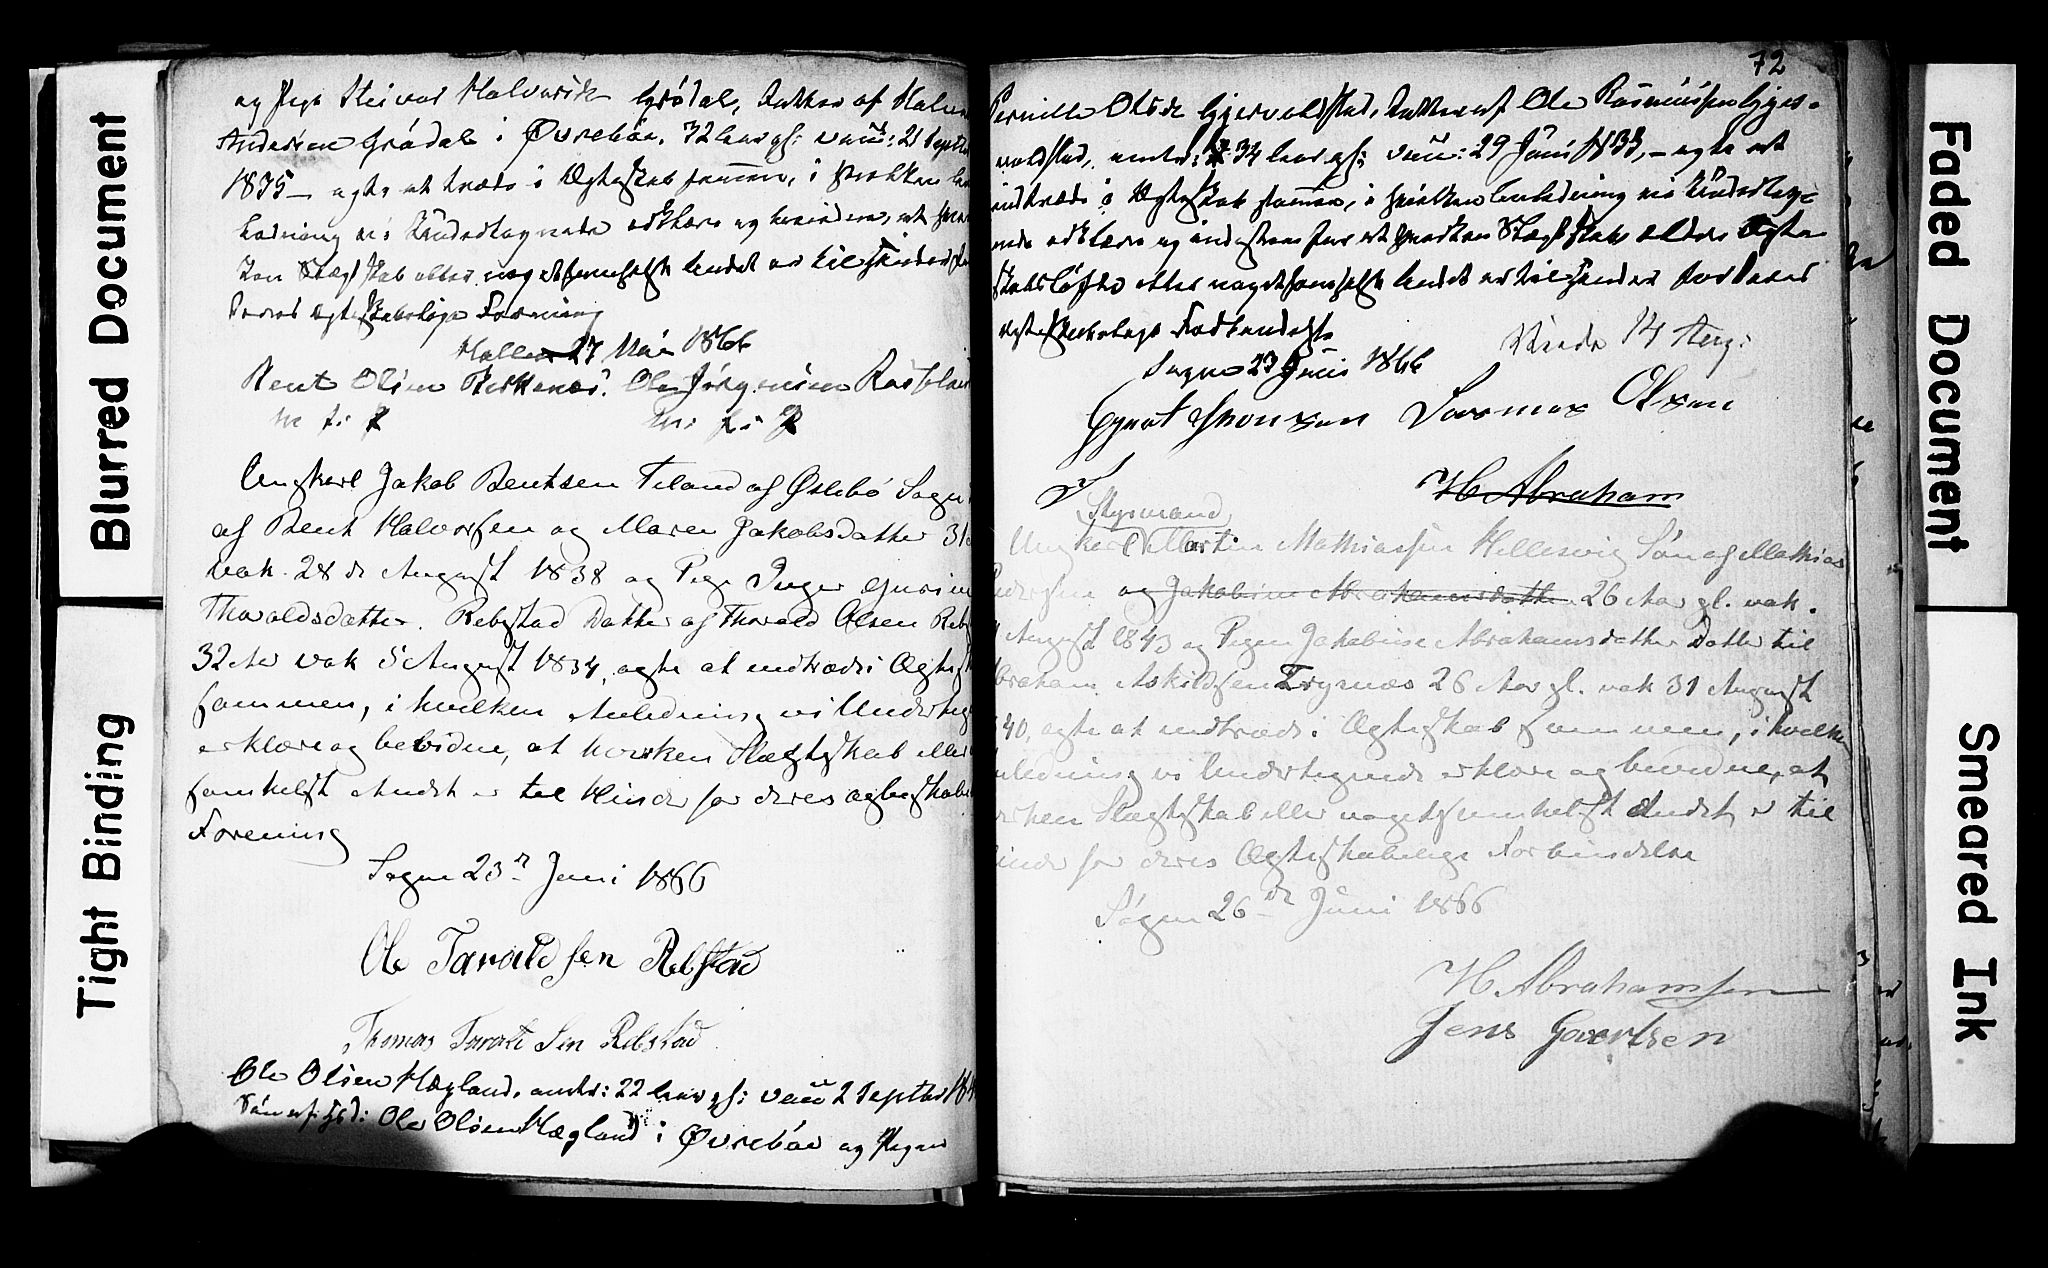 Blurred Document
Tight Binding
og Pige Halvorsdt Grødal, Datter af Halvor
Andersen Grødal i Øvrebøe, 32 Aar gl: vacc: 21 Septbr
1835 – agte at træde i Ægteskab sammen, i hvilken An
ledning vi Undertegnede erklære og bevidne, at hver
ken Slægtskab eller noget somhelst Andet er til Hinder for
deres ægteskabelige Forening
27 Mai 1866
Bent Olsen Ole Jörgensen
Ungkarl Jakob Bentsen af Øslebö Sogn
af Bent Halvorsen og Maren Jakobsdatter 31
vak. 28 de August 1838 og Pige Inger
Thoraldsdatter Rebstad Datter af Thorald Olsen Reb
32 Aar vak 5 August 1834, agte at indtræde i Ægtesk
sammen, i hvilken Anledning vi Underteg
erklære og bevidne, at hverken Slægtskab eller
somhelst Andet er til Hinder for deres ægteskabe
Forening
Søgne 23 Juni 1866
Ole Taraldsen Rebstad
Thomas Taraldsen Rebstad
Ole Olsen Hægland, 22 Aar gl: vacc 2 Septbr 18
Søn af Ole Olsen Hægland i Øvrebøe og Pigen
72
Pernille Olsdt Gjervoldstad, Datter af Ole Rasmussen Gjer-
voldstad, 34 Aar gl: vacc: 29 Juni 1833, – agte at
indtræde i Ægteskab sammen, i hvilken Anledning vi Undertegn-
ede erklære og indestaae for at hverken Slægtskab eller Ægte
skabsløfte eller noget somhelst Andet er til Hinder for deres
ægteskabelige Forbindelse
Søgne 23 Juni 1866
14 Aug:
Olsen
H Abraham
Styrmand
Ungkarl Martin Mathiassen Hellesvig Søn af Mathias
og Jakobine Abrahamsdatter 26 Aar gl. vak.
August 1843 og Pigen Jakobine Abrahamsdatter Datter til
braham Askildsen Trysnæs 26 Aar gl. vak 31 August
40, agte at indtræde i Ægteskab sammen, i hvilken
nledning vi Undertegnede erklære og bevidne, at
erken Slægtskab eller noget somhelst Andet er til
inder for deres Ægteskabelige Forbindelse
Søgne 26 de Juni 1866
H Abrahamsen
Jens Govertsen
Faded Document
Smeared Ink